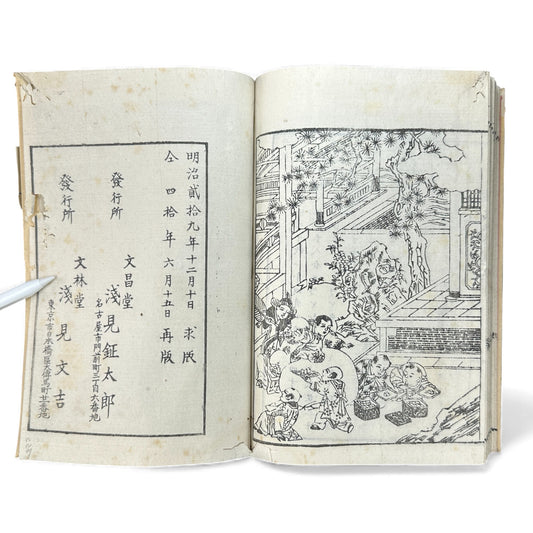 明治貳拾九年十二月十日求版
仝四拾年六月十五日再版
發行所
文昌堂
淺見鉦太郎
名古屋市門前町三丁目六番地
發行所
文林堂
淺見文吉
東京市日本橋區大傳馬町廿一番地